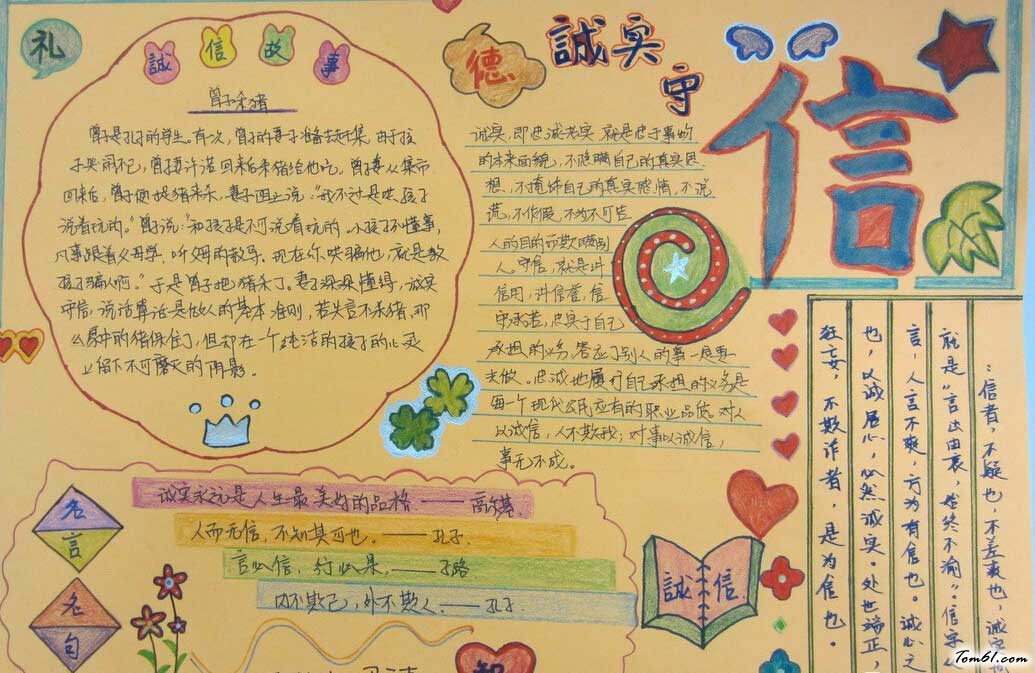 礼
誠信故事
曾子杀猪
曾子是孔子的学生。有次，曾子的妻子准备去赶集，由于孩
子哭闹不已，曾子妻许诺回来后杀猪给他吃。曾子妻从集市
回来后，曾子便捉猪来杀，妻子阻止说："我不过是哄孩子
说着玩的。"曾子说："和孩子是不可说着玩的。小孩子不懂事，
凡事跟着父母学，听父母的教导。现在你哄骗他，就是教
孩子骗人啊。"于是曾子把猪杀了。妻子深深懂得，诚实
守信，说话算话是做人的基本准则，若失言不杀猪，那
么家中的猪保住了，但却在一个纯洁的孩子的心灵
上留下不可磨灭的阴影。
德
誠实
守
信
诚实，即忠诚老实，就是忠于事物
的本来面貌，不隐瞒自己的真实思
想，不掩饰自己的真实感情，不说
谎，不作假，不为不可告
人的目的而欺瞒别
人。守信，就是讲
信用，讲信誉，信
守承诺，忠实于自己
承担的义务，答应了别人的事一定要
去做。忠诚地履行自己承担的义务是
每一个现代公民应有的职业品质。对人
以诚信，人不欺我；对事以诚信，
事无不成。
：信者，不疑也，不差爽也，诚实
就是"言出由衷，始终不渝"。信字从
言，人言不爽，方为有信也。诚心之
也，以诚居心，必然诚实。处世端正，
狂妄，不欺诈者，是为信也。
名言
名句
诚实永远是人生最美好的品格——高尔基
人而无信，不知其可也。——孔子
言必信，行必果。——子路
内不欺己，外不欺人。——孔子
誠信
智
Tom61.com